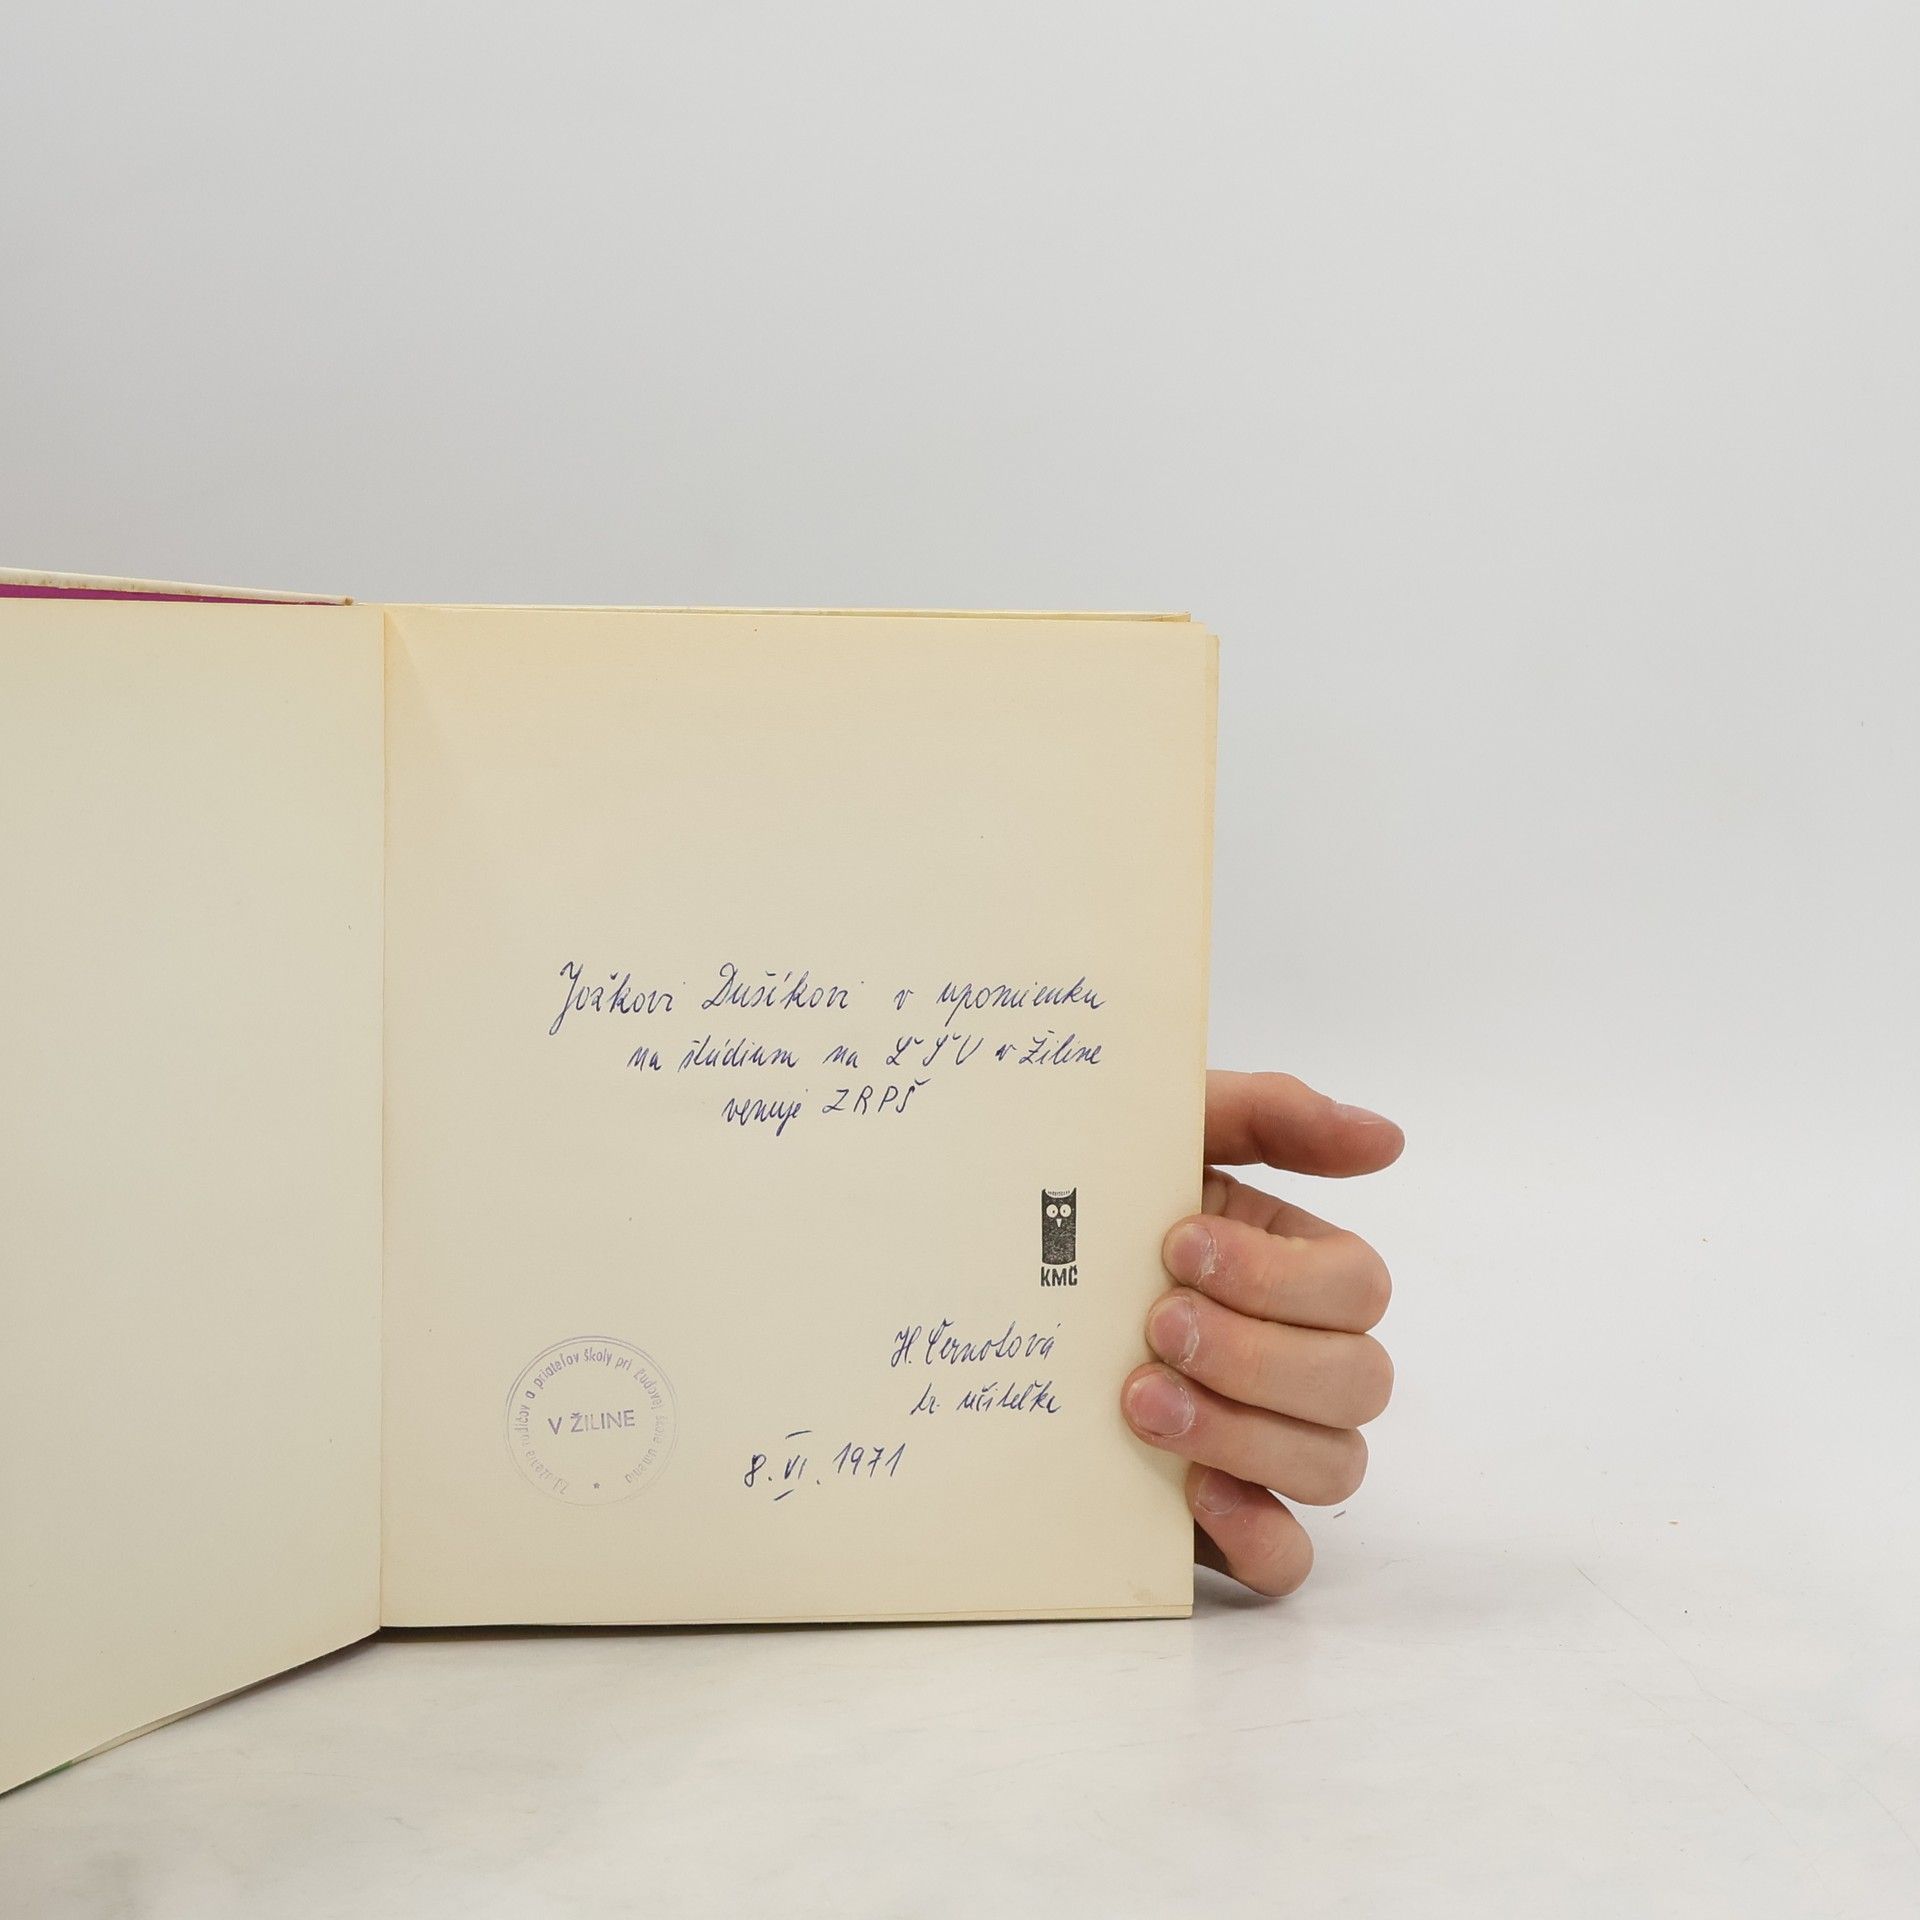 Jožkovi Dušíkovi v upomienku
na štúdium na ĽŠU v Žiline
venuje ZRPŠ
KMČ
H. Černotová
tr. učiteľka
8. VI. 1971
Združenie rodičov a priateľov školy pri Ľudovej škole umenia
V ŽILINE